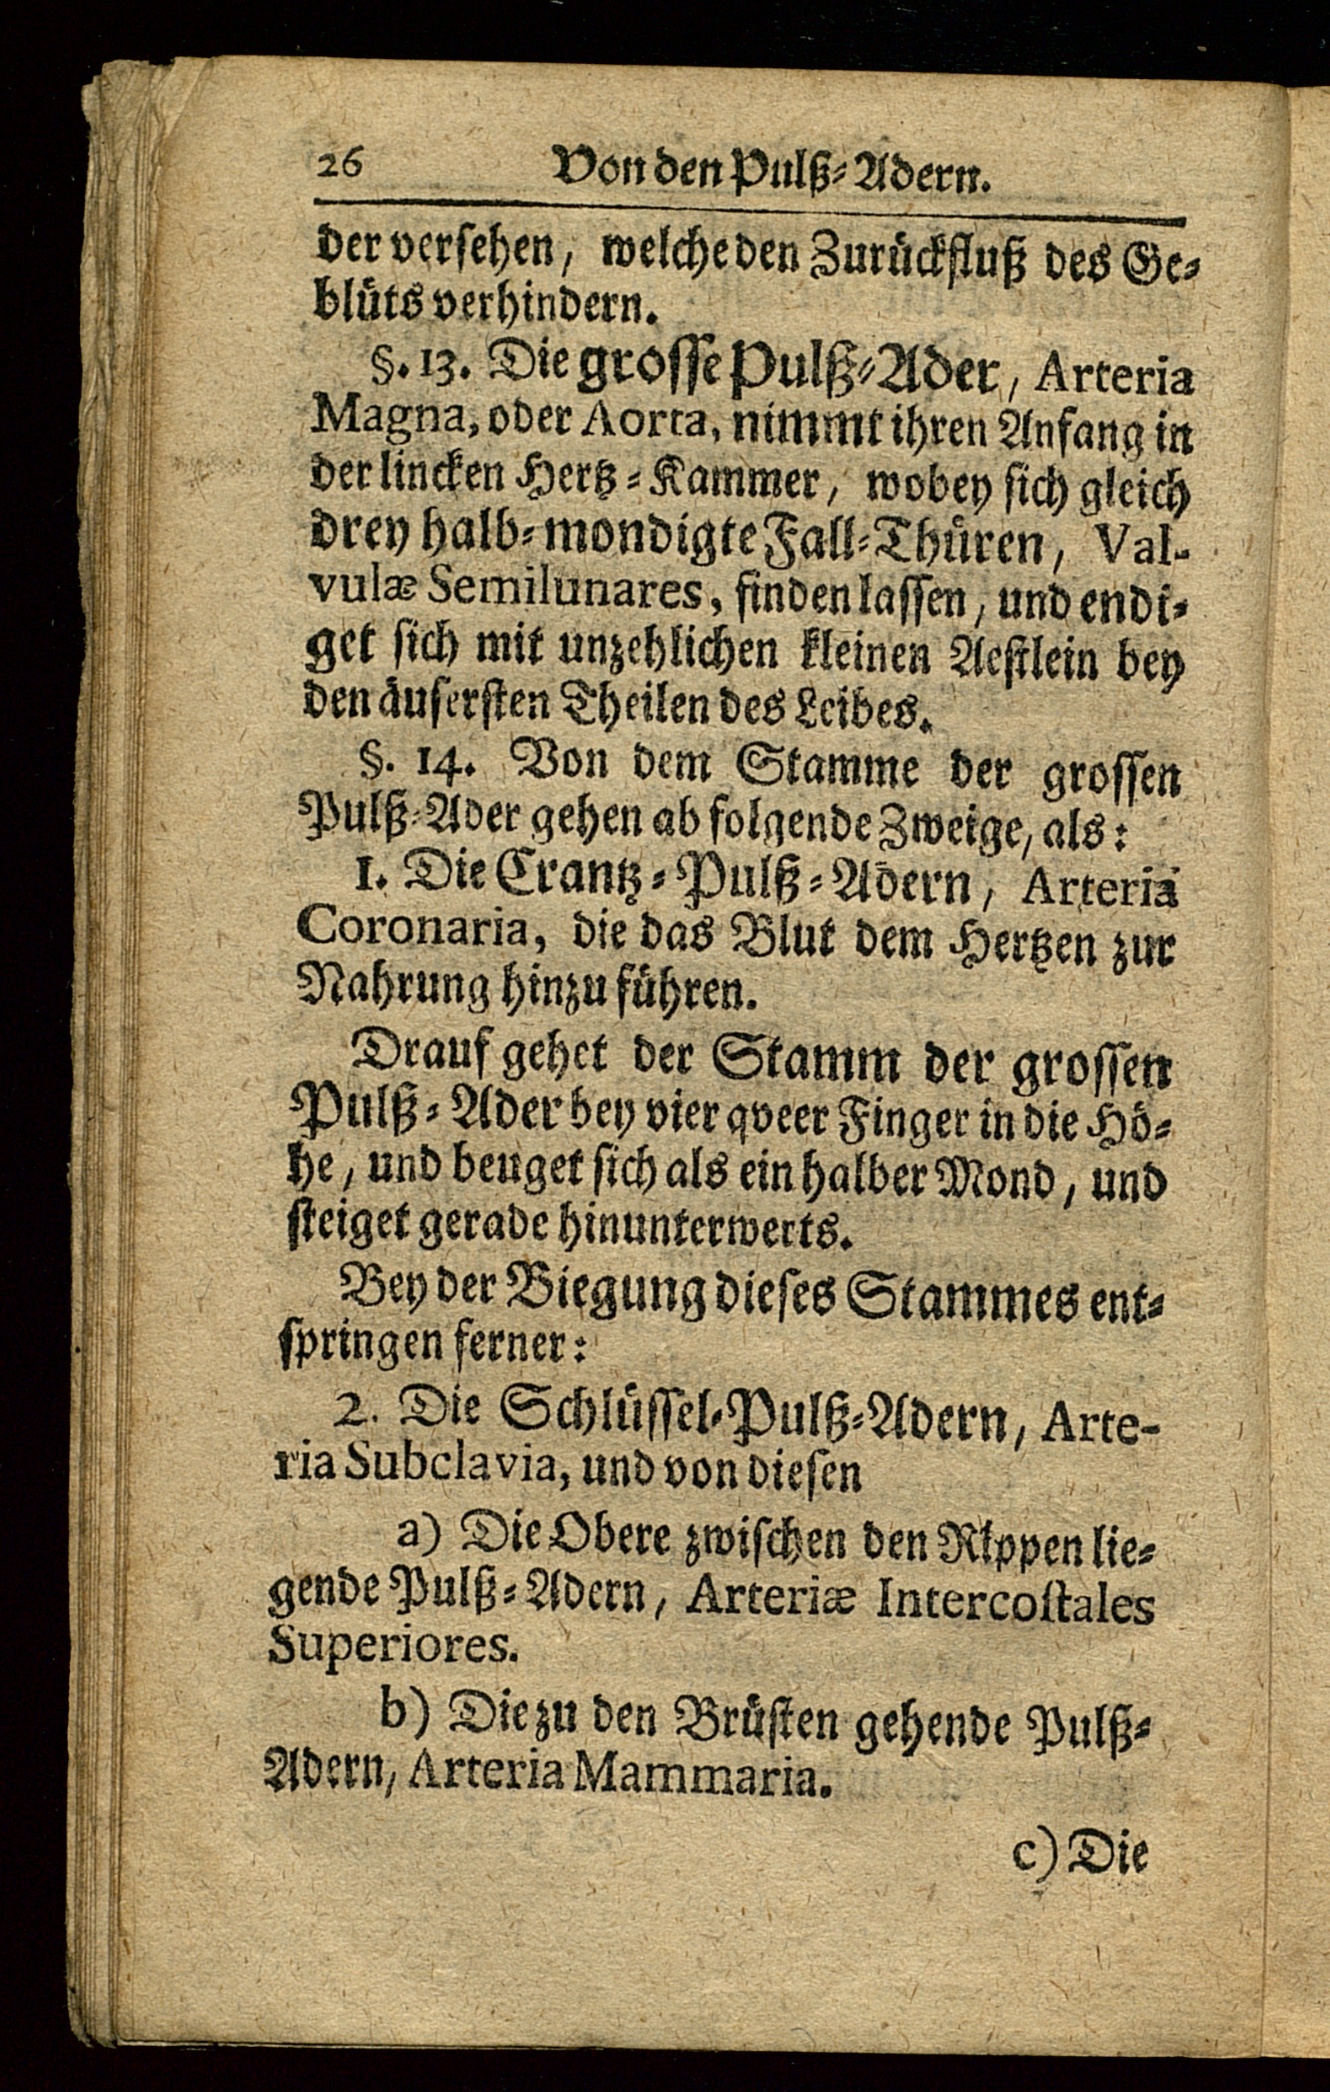 26 Von den Pulß-Adern.
der versehen, welche den Zurückfluß des Ge-
blüts verhindern.
§. 13. Die grosse Pulß-Ader, Arteria
Magna, oder Aorta, nimmt ihren Anfang in
der lincken Hertz-Kammer, wobey sich gleich
drey halb-mondigte Fall-Thüren, Val-
vulæ Semilunares, finden lassen, und endi-
get sich mit unzehlichen kleinen Aestlein bey
den äusersten Theilen des Leibes.
§. 14. Von dem Stamme der grossen
Pulß-Ader gehen ab folgende Zweige, als:
1. Die Crantz-Pulß-Adern, Arteria
Coronaria, die das Blut dem Hertzen zur
Nahrung hinzu führen.
Drauf gehet der Stamm der grossen
Pulß-Ader bey vier qveer Finger in die Hö-
he, und beuget sich als ein halber Mond, und
steiget gerade hinunterwerts.
Bey der Biegung dieses Stammes ent-
springen ferner:
2. Die Schlüssel-Pulß-Adern, Arte-
ria Subclavia, und von diesen
a) Die Obere zwischen den Rippen lie-
gende Pulß-Adern, Arteriæ Intercostales
Superiores.
b) Die zu den Brüsten gehende Pulß-
Adern, Arteria Mammaria.
c) Die